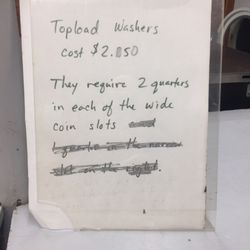 Topload Washers
cost $2.50
They require 2 quarters
in each of the wide
coin slots